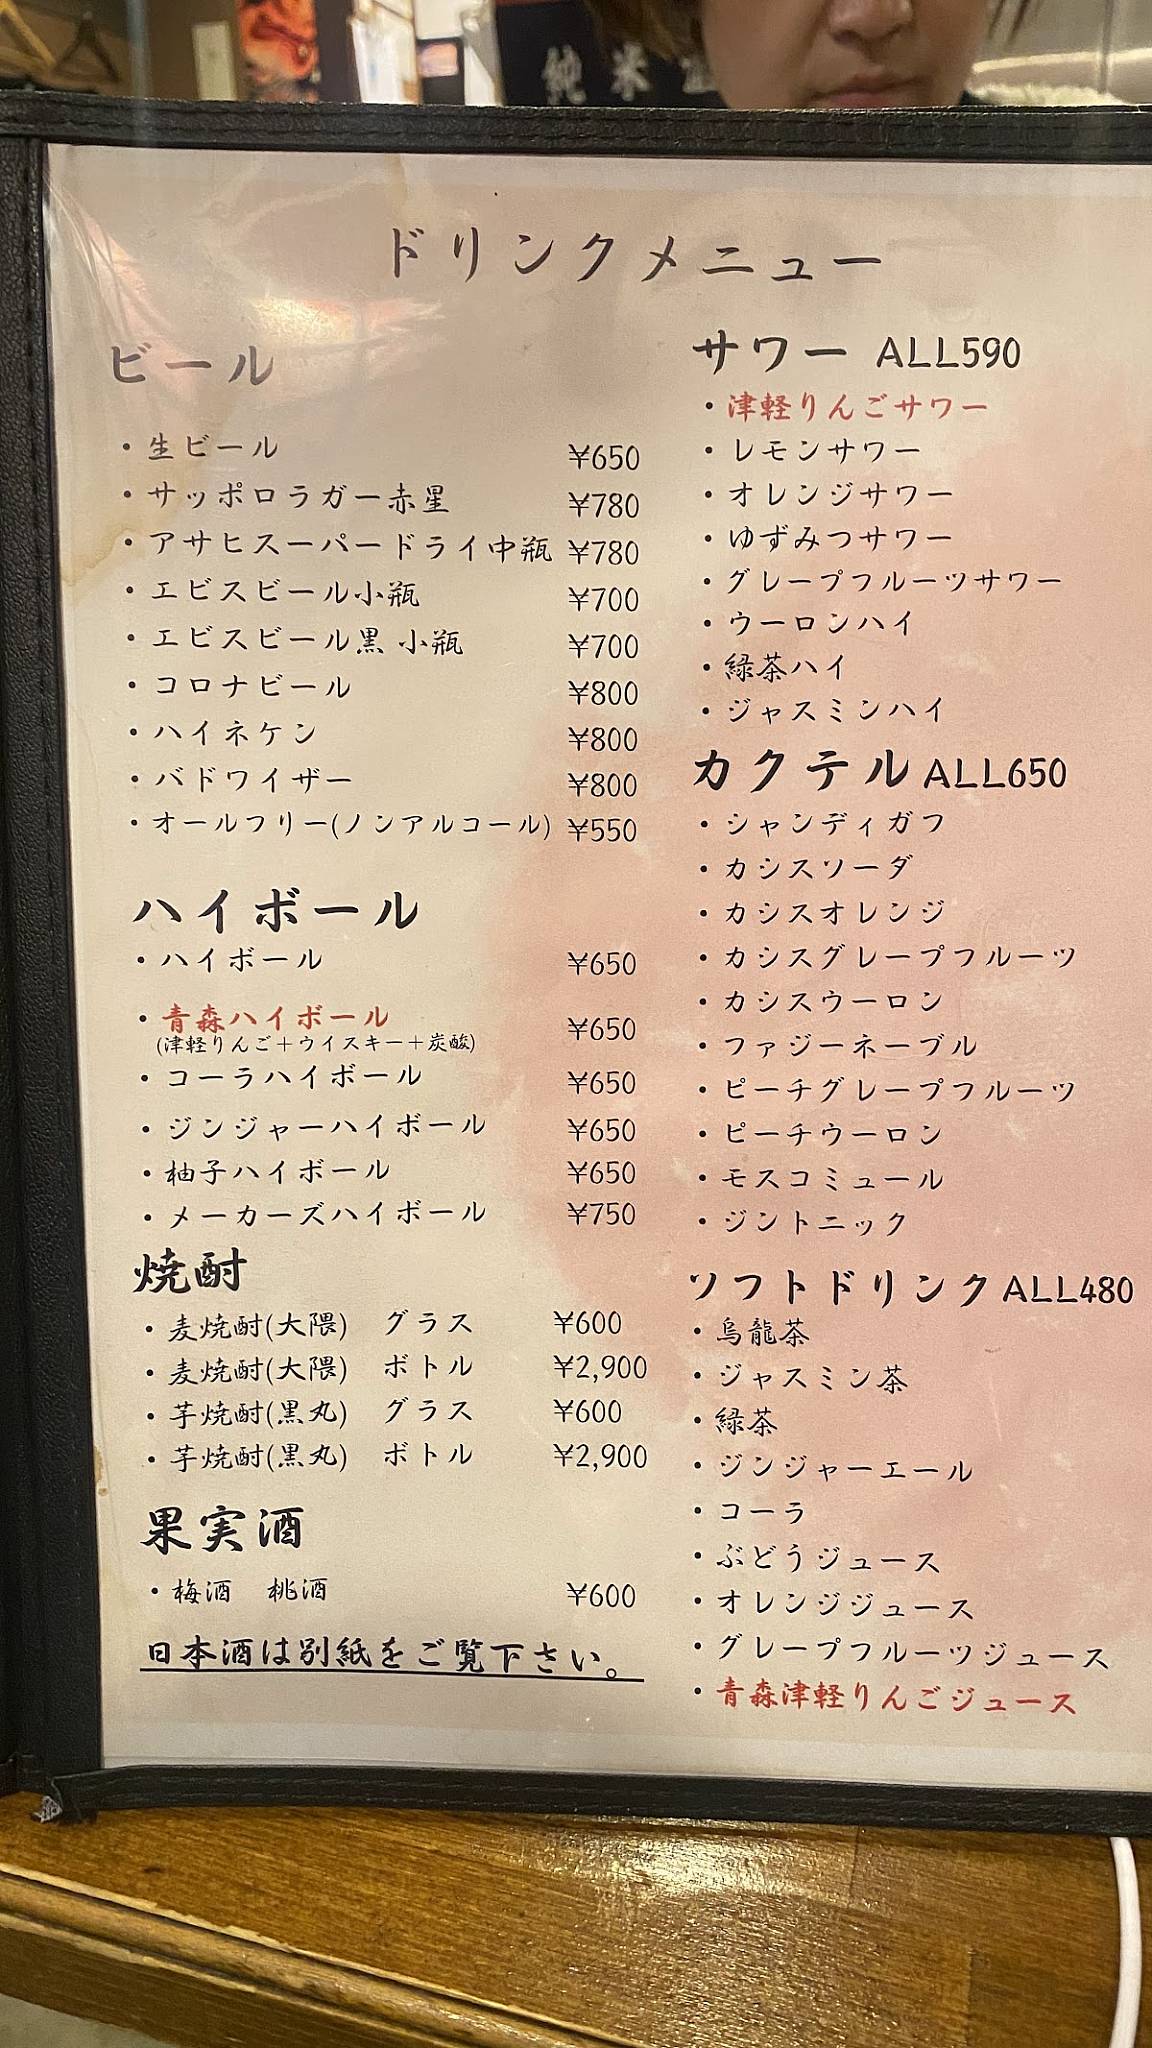 純米
ドリンクメニュー
ビール
・生ビール ¥650
・サッポロラガー赤星 ¥780
・アサヒスーパードライ中瓶 ¥780
・エビスビール小瓶 ¥700
・エビスビール黒 小瓶 ¥700
・コロナビール ¥800
・ハイネケン ¥800
・バドワイザー ¥800
・オールフリー(ノンアルコール) ¥550
ハイボール
・ハイボール ¥650
・青森ハイボール ¥650
(津軽りんご＋ウイスキー＋炭酸)
・コーラハイボール ¥650
・ジンジャーハイボール ¥650
・柚子ハイボール ¥650
・メーカーズハイボール ¥750
焼酎
・麦焼酎(大隈) グラス ¥600
・麦焼酎(大隈) ボトル ¥2,900
・芋焼酎(黒丸) グラス ¥600
・芋焼酎(黒丸) ボトル ¥2,900
果実酒
・梅酒 桃酒 ¥600
日本酒は別紙をご覧下さい。
サワー ALL590
・津軽りんごサワー
・レモンサワー
・オレンジサワー
・ゆずみつサワー
・グレープフルーツサワー
・ウーロンハイ
・緑茶ハイ
・ジャスミンハイ
カクテル ALL650
・シャンディガフ
・カシスソーダ
・カシスオレンジ
・カシスグレープフルーツ
・カシスウーロン
・ファジーネーブル
・ピーチグレープフルーツ
・ピーチウーロン
・モスコミュール
・ジントニック
ソフトドリンク ALL480
・烏龍茶
・ジャスミン茶
・緑茶
・ジンジャーエール
・コーラ
・ぶどうジュース
・オレンジジュース
・グレープフルーツジュース
・青森津軽りんごジュース